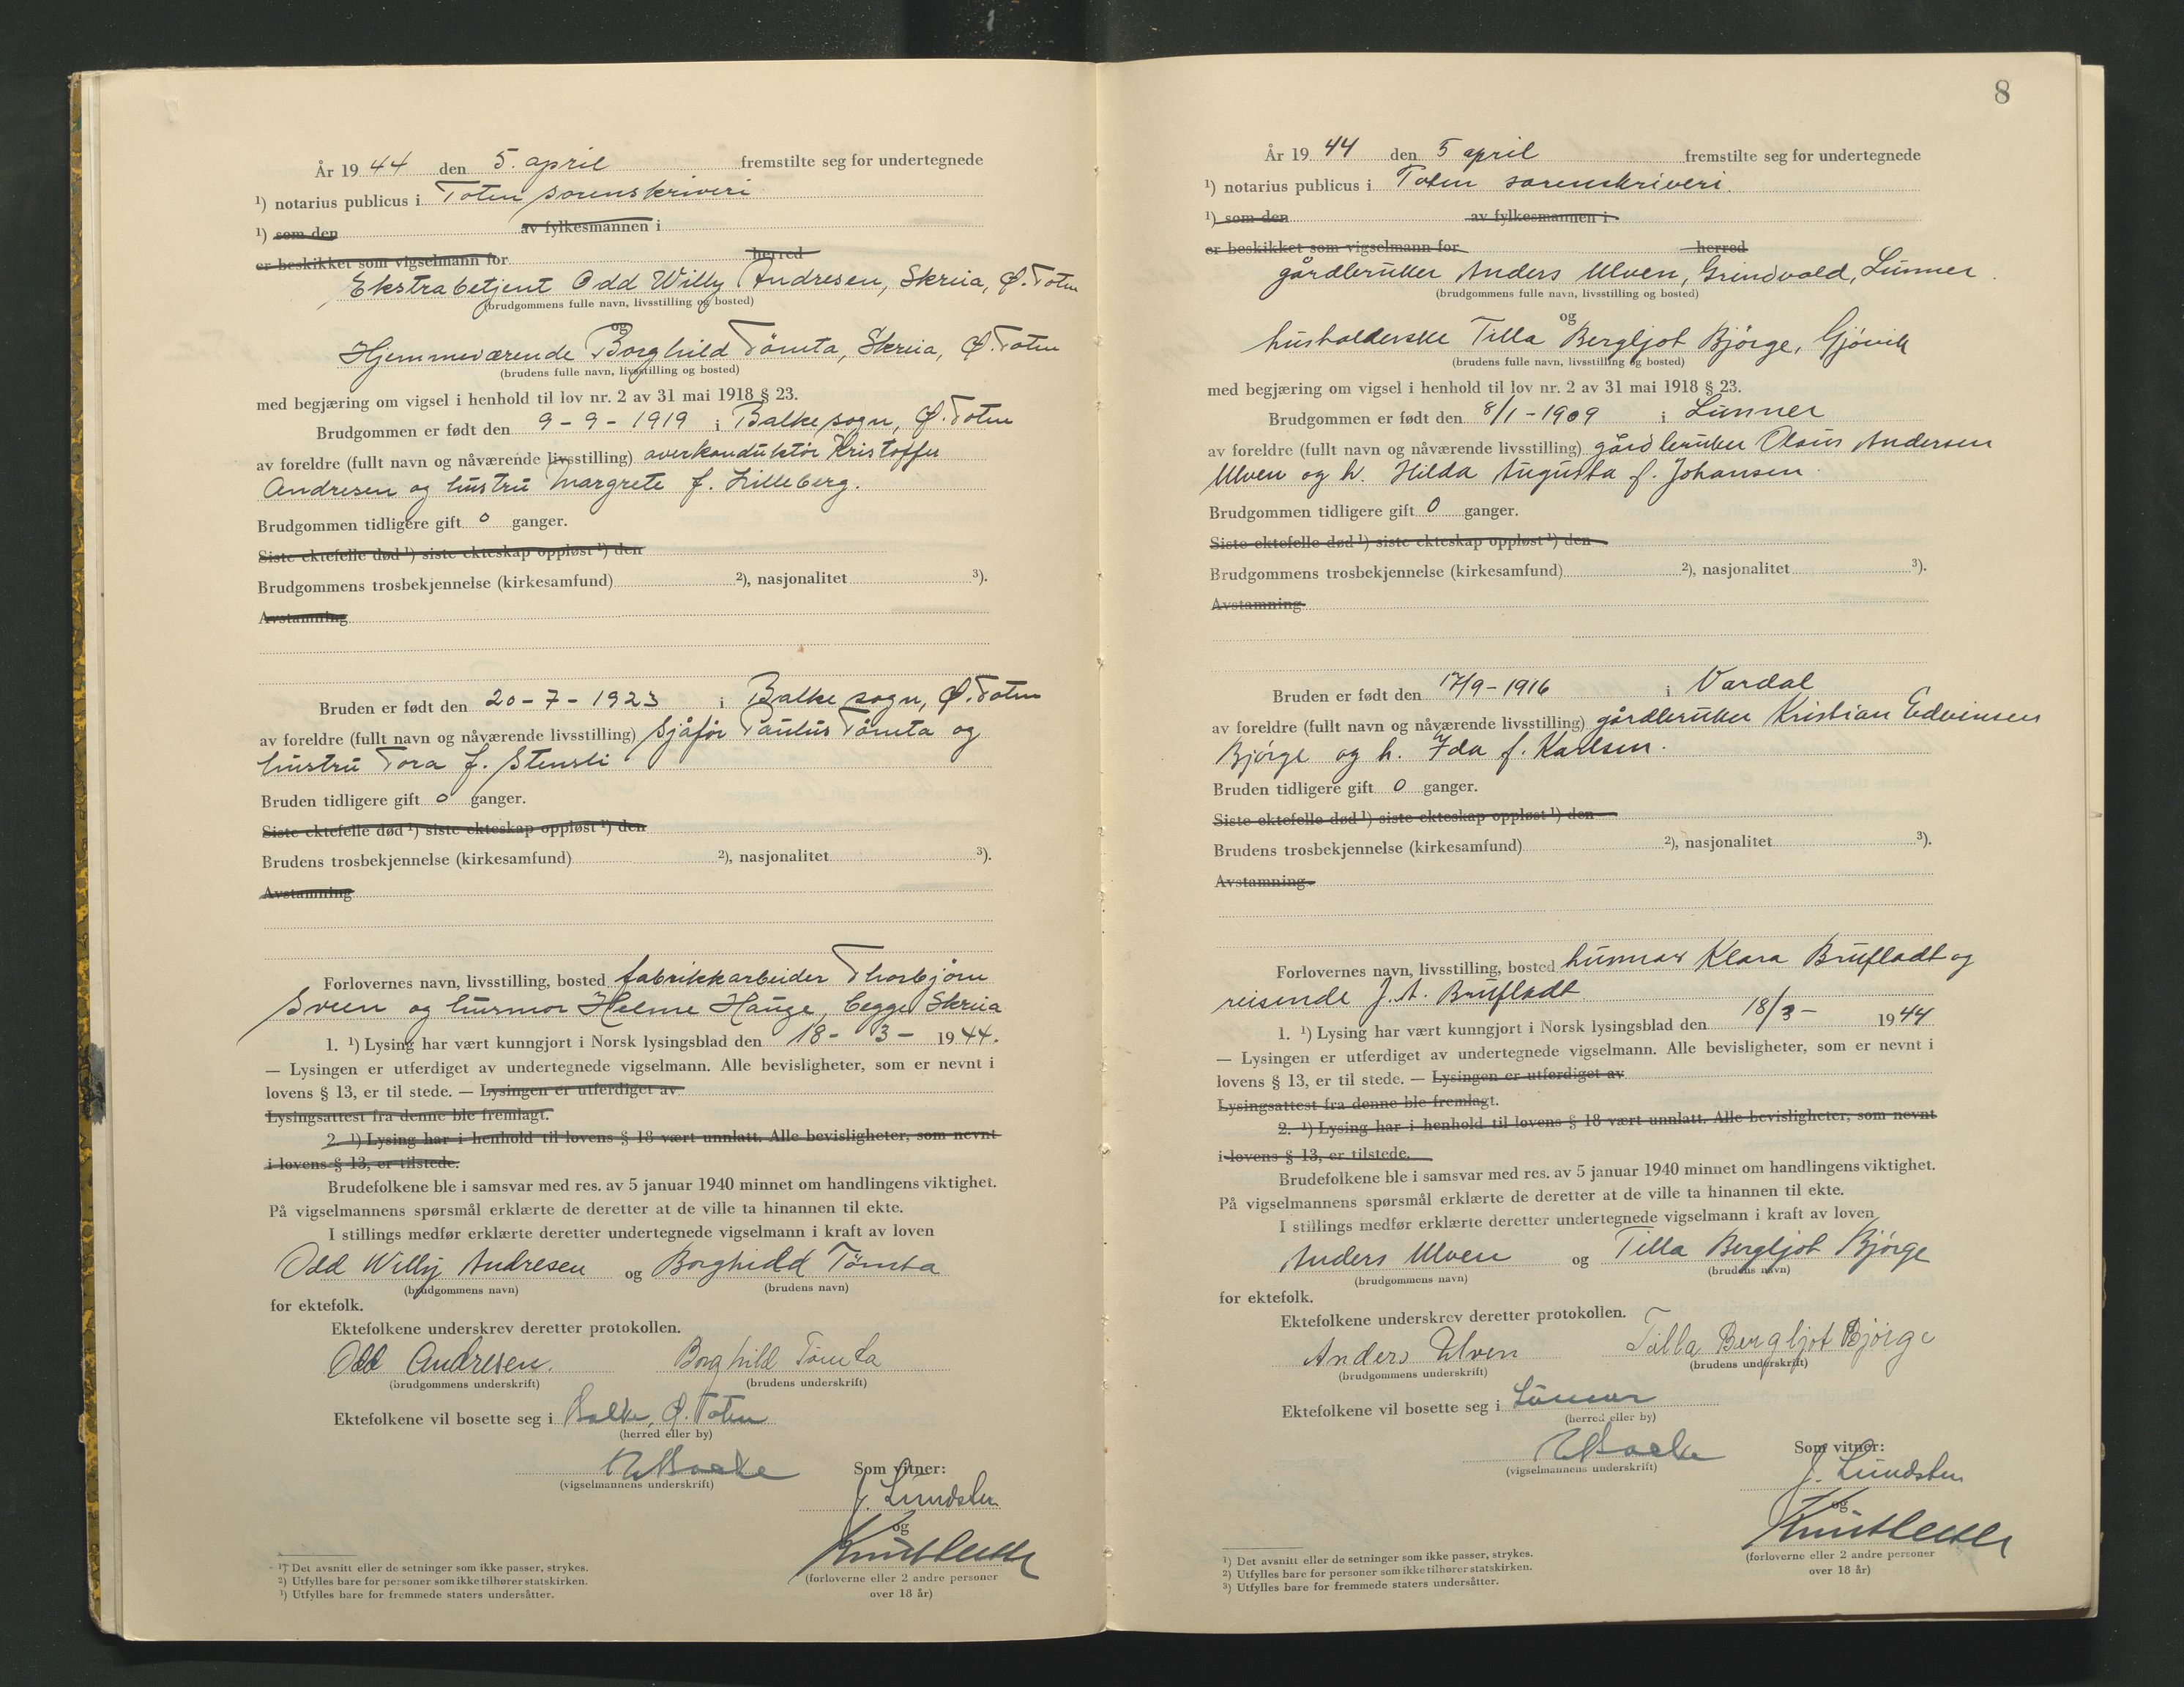 År 1944 den 5. april fremstilte seg for undertegnede
¹) notarius publicus i Toten sorenskriveri
¹) som den av fylkesmannen i
er beskikket som vigselmann for herred
Ekstrabetjent Odd Willy Andresen, Skreia, Ø. Toten
(brudgommens fulle navn, livsstilling og bosted)
og
Hjemmeværende Borghild Tömta, Skreia, Ø. Toten
(brudens fulle navn, livsstilling og bosted)
med begjæring om vigsel i henhold til lov nr. 2 av 31 mai 1918 § 23.
Brudgommen er født den 9-9-1919 i Balke sogn, Ø. Toten
av foreldre (fullt navn og nåværende livsstilling) overkonduktör Kristoffer
Andresen og hustru Margrete f. Lilleberg.
Brudgommen tidligere gift 0 ganger.
Siste ektefelle død ¹) siste ekteskap oppløst ¹) den
Brudgommens trosbekjennelse (kirkesamfund) ²), nasjonalitet ³).
Avstamning
Bruden er født den 20-7-1923 i Balke sogn, Ø. Toten
av foreldre (fullt navn og nåværende livsstilling) Sjåför Paulus Tömta og
hustru Tora f. Stensli
Bruden tidligere gift 0 ganger.
Siste ektefelle død ¹) siste ekteskap oppløst ¹) den
Brudens trosbekjennelse (kirkesamfund) ²), nasjonalitet ³).
Avstamning
Forlovernes navn, livsstilling, bosted fabrikkarbeider Thorbjörn
Sveen og husmor Helme Hauge, begge Skreia
1. ¹) Lysing har vært kunngjort i Norsk lysingsblad den 18- 3- 1944.
— Lysingen er utferdiget av undertegnede vigselmann. Alle bevisligheter, som er nevnt i
lovens § 13, er til stede. — Lysingen er utferdiget av
Lysingsattest fra denne ble fremlagt.
2. ¹) Lysing har i henhold til lovens § 18 vært unnlatt. Alle bevisligheter, som nevnt
i lovens § 13, er tilstede.
Brudefolkene ble i samsvar med res. av 5 januar 1940 minnet om handlingens viktighet.
På vigselmannens spørsmål erklærte de deretter at de ville ta hinannen til ekte.
I stillings medfør erklærte deretter undertegnede vigselmann i kraft av loven
Odd Willy Andresen og Borghild Tömta
(brudgommens navn) (brudens navn)
for ektefolk.
Ektefolkene underskrev deretter protokollen.
Odd Andresen. Borghild Tömta
(brudgommens underskrift) (brudens underskrift)
Ektefolkene vil bosette seg i Balke, Ø. Toten
(herred eller by)
(vigselmannens underskrift) Som vitner:
J. Lundsten
og
(forloverne eller 2 andre personer
over 18 år)
¹) Det avsnitt eller de setninger som ikke passer, strykes.
²) Utfylles bare for personer som ikke tilhører statskirken.
³) Utfylles bare for fremmede staters undersåtter.
8
År 1944 den 5 april fremstilte seg for undertegnede
¹) notarius publicus i Toten sorenskriveri.
¹) som den av fylkesmannen i
er beskikket som vigselmann for herred
gårdbruker Anders Ulven, Grindvold, Lunner.
(brudgommens fulle navn, livsstilling og bosted)
og
husholderske Tilla Bergljot Bjørge, Gjøvik
(brudens fulle navn, livsstilling og bosted)
med begjæring om vigsel i henhold til lov nr. 2 av 31 mai 1918 § 23.
Brudgommen er født den 8/1-1909 i Lunner
av foreldre (fullt navn og nåværende livsstilling) gårdbruker Olaus Andersen
Ulven og h. Hilda Augusta f. Johansen.
Brudgommen tidligere gift 0 ganger.
Siste ektefelle død ¹) siste ekteskap oppløst ¹) den
Brudgommens trosbekjennelse (kirkesamfund) ²), nasjonalitet ³).
Avstamning
Bruden er født den 17/9-1916 i Vardal
av foreldre (fullt navn og nåværende livsstilling) gårdbruker Kristian Edvinsen
Bjørge og h. Ida f. Karlsen.
Bruden tidligere gift 0 ganger.
Siste ektefelle død ¹) siste ekteskap oppløst ¹) den
Brudens trosbekjennelse (kirkesamfund) ²), nasjonalitet ³).
Avstamning
Forlovernes navn, livsstilling, bosted husmor Klara Brufladt og
reisende J. A. Brufladt
1. ¹) Lysing har vært kunngjort i Norsk lysingsblad den 18/3- 1944
— Lysingen er utferdiget av undertegnede vigselmann. Alle bevisligheter, som er nevnt i
lovens § 13, er til stede. — Lysingen er utferdiget av
Lysingsattest fra denne ble fremlagt.
2. ¹) Lysing har i henhold til lovens § 18 vært unnlatt. Alle bevisligheter, som nevnt
i lovens § 13, er tilstede.
Brudefolkene ble i samsvar med res. av 5 januar 1940 minnet om handlingens viktighet.
På vigselmannens spørsmål erklærte de deretter at de ville ta hinannen til ekte.
I stillings medfør erklærte deretter undertegnede vigselmann i kraft av loven
Anders Ulven og Tilla Bergljot Bjørge
(brudgommens navn) (brudens navn)
for ektefolk.
Ektefolkene underskrev deretter protokollen.
Anders Ulven Tilla Bergljot Bjørge
(brudgommens underskrift) (brudens underskrift)
Ektefolkene vil bosette seg i Lunner
(herred eller by)
(vigselmannens underskrift) Som vitner:
J. Lundsten
og
(forloverne eller 2 andre personer
over 18 år)
¹) Det avsnitt eller de setninger som ikke passer, strykes.
²) Utfylles bare for personer som ikke tilhører statskirken.
³) Utfylles bare for fremmede staters undersåtter.